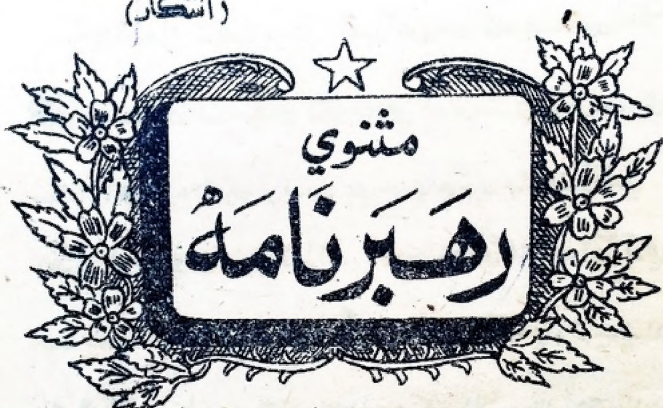 (آشکار)
مثنوي
رَهبَرنَامَهْ